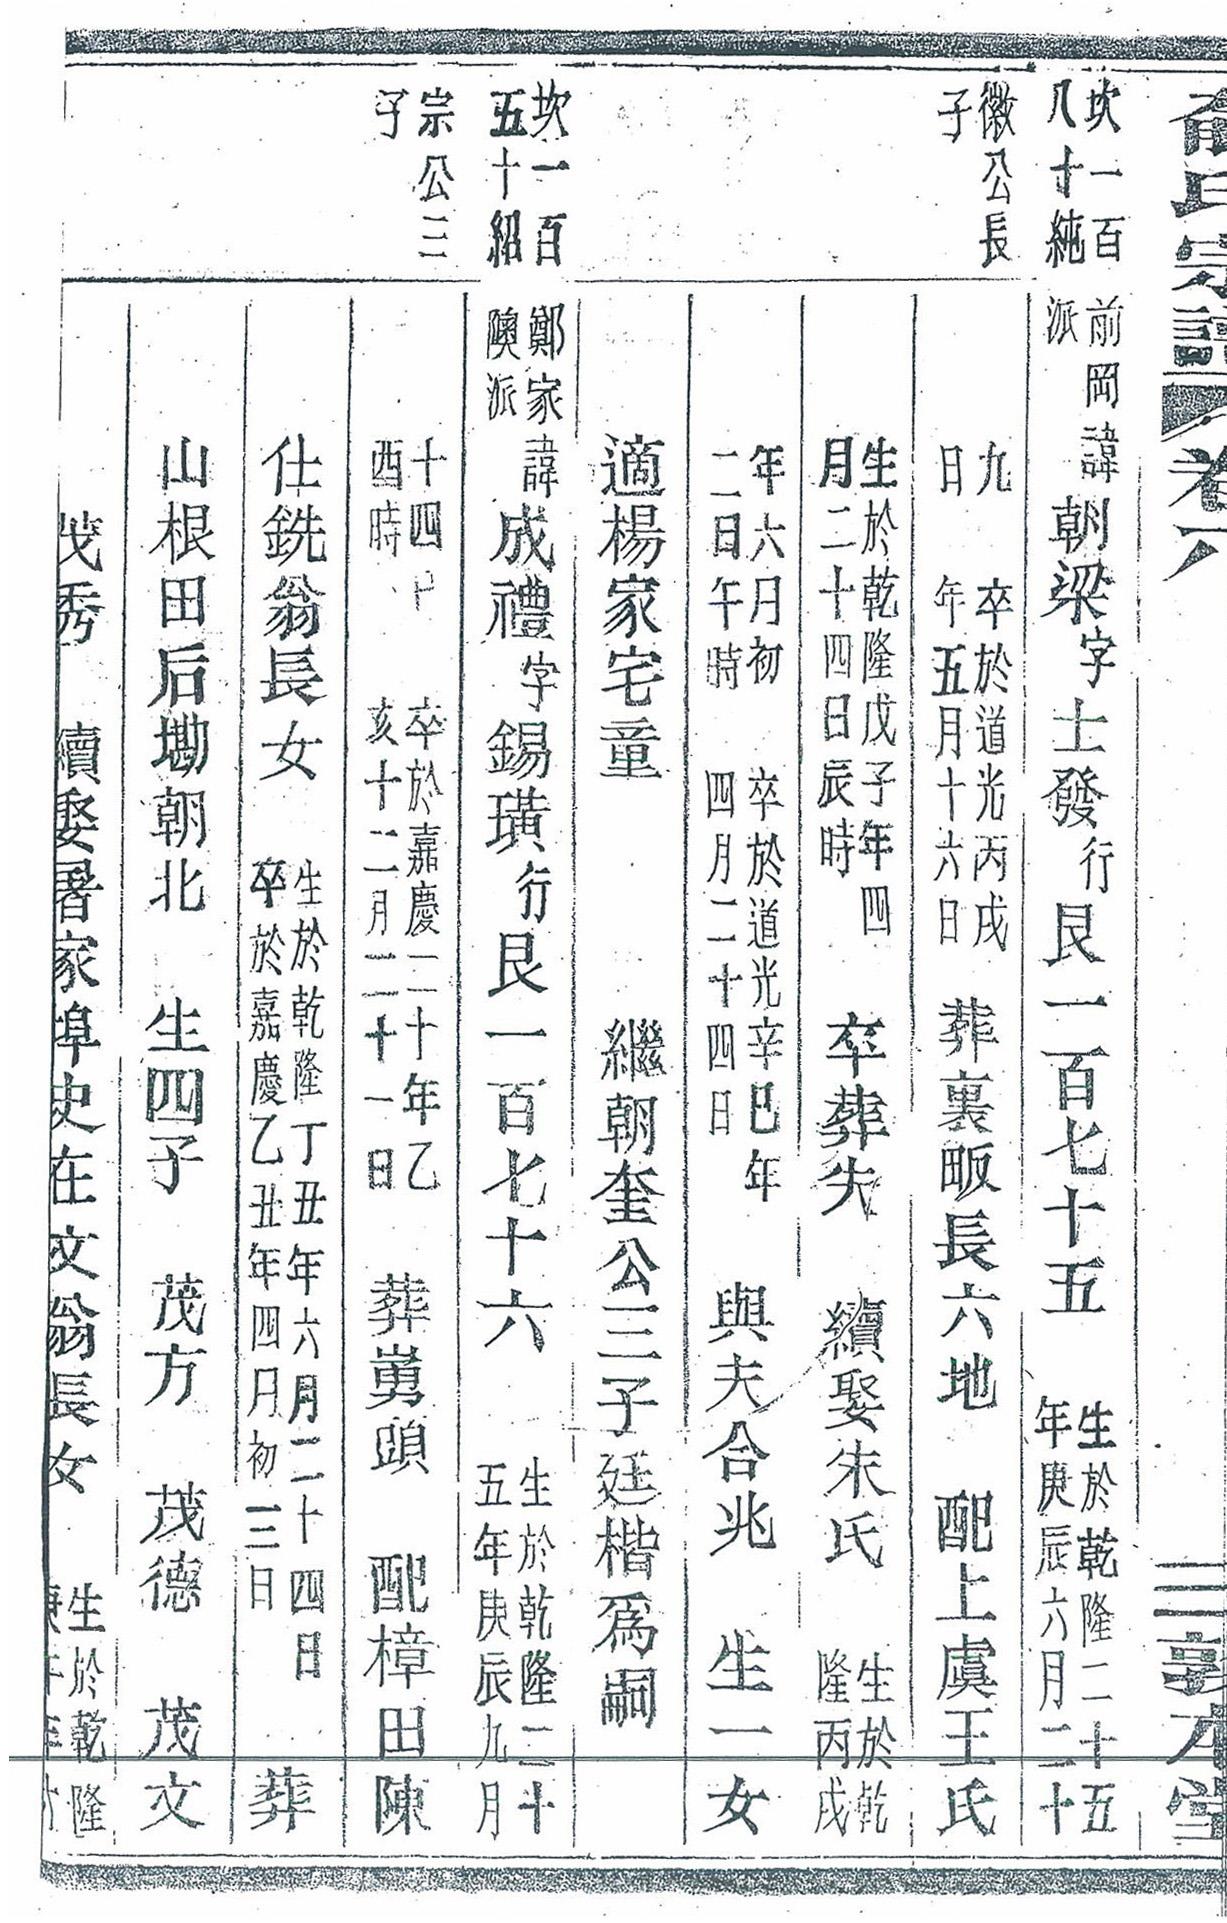 俞氏宗譜 卷六 三 敦本堂
坎一百
八十純
徽公長
子
前岡
派
諱朝梁字士發行艮一百七十五
生於乾隆二十五
年庚辰六月二十
九
日
卒於道光丙戌
年五月十六日
葬裏畈長六地 配上虞王氏
生於乾隆戊子年四
月二十四日辰時
卒葬失 續娶朱氏
生於乾
隆丙戌
年六月初
二日午時
卒於道光辛巳年
四月二十四日
與夫合兆 生一女
適楊家宅童 繼朝奎公三子廷楷為嗣
坎一百
五十紹
宗公三
子
鄭家
隩派
諱成禮字錫璜行艮一百七十六
生於乾隆二十
五年庚辰九月
十四日
酉時
卒於嘉慶二十年乙
亥十二月二十一日
葬嵩頭 配樟田陳
仕銑翁長女
生於乾隆丁丑年六月二十四日
卒於嘉慶乙丑年四月初三日
葬
山根田后墈朝北 生四子 茂方 茂德 茂文
茂秀 續娶署家埠史在文翁長女
生於乾隆